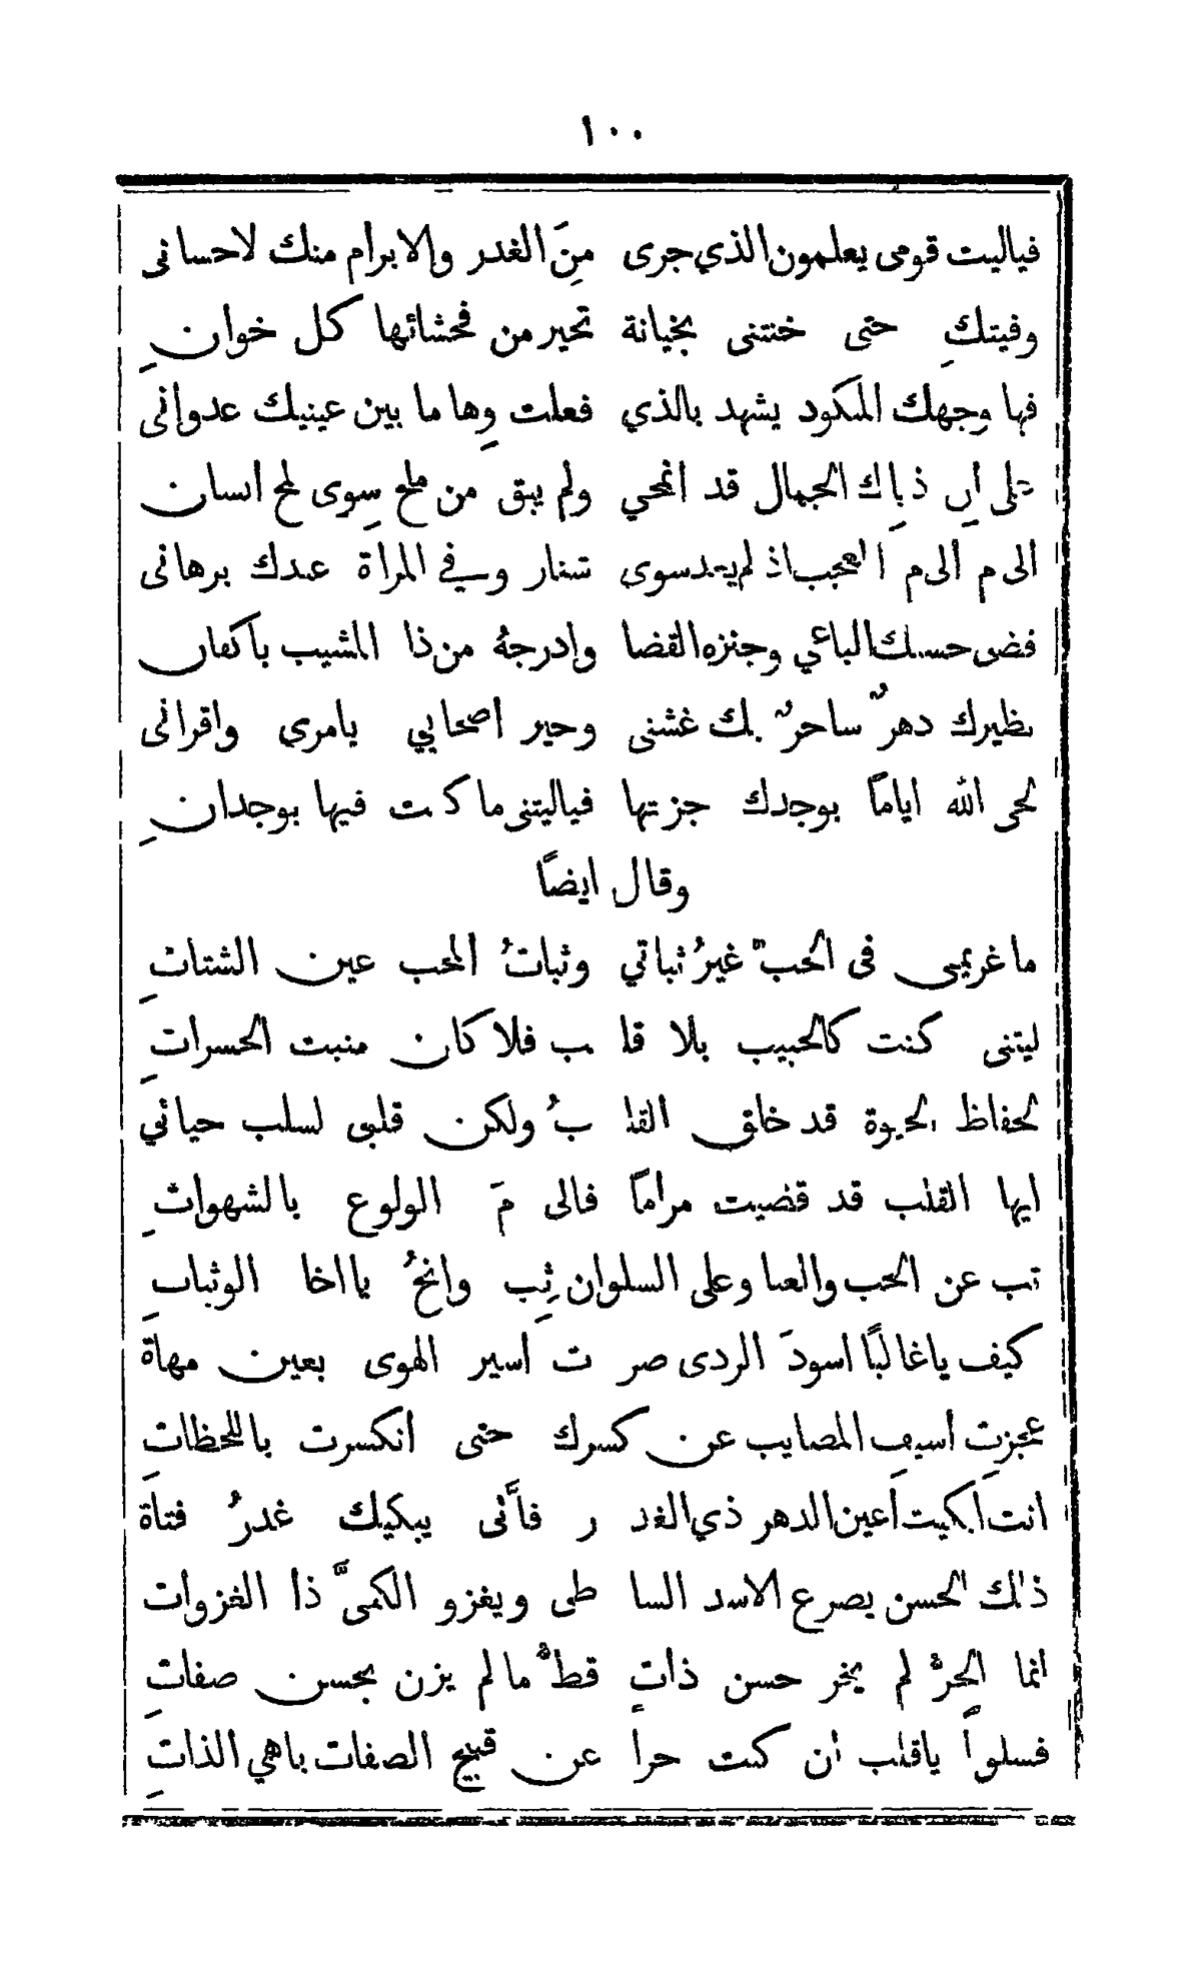 ١٠٠
فياليت قومى يعلمون الذي جرى مِنَ الغدر والابرام منك لاحسانى
وفيتكِ حتى خنتنى بخيانة تحير من فحشائها كل خوانِ
فها وجهك المنكود يشهد بالذي فعلت وها ما بين عينيك عدوانى
على ان ذياك الجمال قد انمحي ولم يبق من ملح سوى لمح انسان
الى م الى م العجب اذ لم يعد سوى شنار وفي المرأة عندك برهانى
فضى حسنك الباغي وجنزه القضا وادرجهُ من ذا المشيب باكفان
نظيرك دهرٌ ساحرٌ بك غشنى وحير اصحابي بامرى واقرانى
لحى الله اياماً بوجدك جزتها فياليتنى ما كنت فيها بوجدانِ
وقال ايضاً
ما غريمى فى الحبّ غيرُ ثباتي وثباتُ المحب عين الشتاتِ
ليتنى كنت كالحبيب بلا قلب فلا كان منبت الحسراتِ
لحفاظ الحيوة قد خلق القلبُ ولكن قلبى لسلب حياتي
ايها القلب قد قضيت مراماً فالى مَ الولوع بالشهواتِ
تب عن الحب والعنا وعلى السلوان ثِب وانحُ يا اخا الوثباتِ
كيف يا غالبًا اسودَ الردى صرت أسير الهوى بعين مهاة
عجزت أسيف المصايب عن كسرك حتى أنكسرت باللحظاتِ
انت ابكيت أعين الدهر ذي الغدر فأَنى يبكيك غدرُ فتاة
ذلك الحسن يصرع الاسد الساطى ويغزو الكمىَّ ذا الغزوات
انما الحرُّ لم يخر حسن ذاتٍ قطُّ ما لم يزن بحسن صفاتِ
فسلواً ياقلب ان كنت حرا عن قبيح الصفات باهي الذاتِ